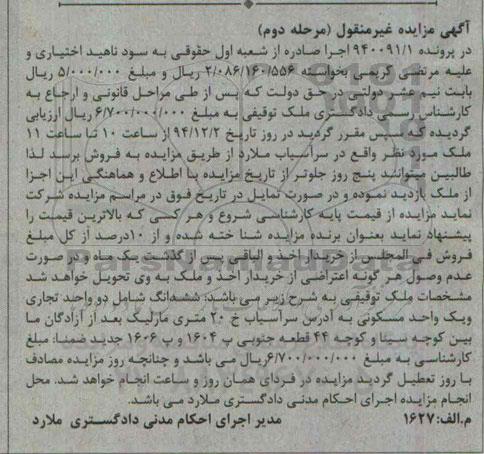 آگهی مزایده غیرمنقول (مرحله دوم)
در پرونده ۹۴۰۰۹۱/۱ اجرا صادره از شعبه اول حقوقی به سود ناهید اختیاری و
علیه مرتضی کریمی بخواسته ۲/۰۸۶/۱۶۰/۵۵۶ ریال و مبلغ ۵/۰۰۰/۰۰۰ ریال
بابت نیم عشر دولتی در حق دولت که پس از طی مراحل قانونی و ارجاع به
کارشناس رسمی دادگستری ملک توقیفی به مبلغ ۶/۷۰۰/۰۰۰/۰۰۰ ریال ارزیابی
گردیده که سپس مقرر گردید در روز تاریخ ۹۴/۱۲/۲ از ساعت ۱۰ تا ساعت ۱۱
ملک مورد نظر واقع در سرآسیاب ملارد از طریق مزایده به فروش برسد لذا
طالبین میتوانند پنج روز جلوتر از تاریخ مزایده با اطلاع و هماهنگی این اجرا
از ملک بازدید نموده و در صورت تمایل در تاریخ فوق در مراسم مزایده شرکت
نماید مزایده از قیمت پایه کارشناسی شروع و هر کسی که بالاترین قیمت را
پیشنهاد نماید بعنوان برنده مزایده شنا خته شده و از ۱۰درصد از کل مبلغ
فروش فی المجلس از خریدار اخذ و الباقی پس از گذشت یک ماه و در صورت
عدم وصول هر گونه اعتراضی از خریدار اخذ و ملک به وی تحویل خواهد شد
مشخصات ملک توقیفی به شرح زیر می باشد: ششدانگ شامل دو واحد تجاری
ویک واحد مسکونی به آدرس سرآسیاب خ ۲۰ متری مارلیک بعد از آزادگان ما
بین کوچه سینا و کوچه ۴۴ قطعه جنوبی پ ۱۶۰۴ و پ ۱۶۰۶ جدید ضمنا: مبلغ
کارشناسی به مبلغ ۶/۷۰۰/۰۰۰/۰۰۰ریال می باشد و چنانچه روز مزایده مصادف
با روز تعطیل گردید مزایده در فردای همان روز و ساعت انجام خواهد شد. محل
انجام مزایده اجرای احکام مدنی دادگستری ملارد می باشد.
م.الف:۱۶۲۷ مدیر اجرای احکام مدنی دادگستری ملارد